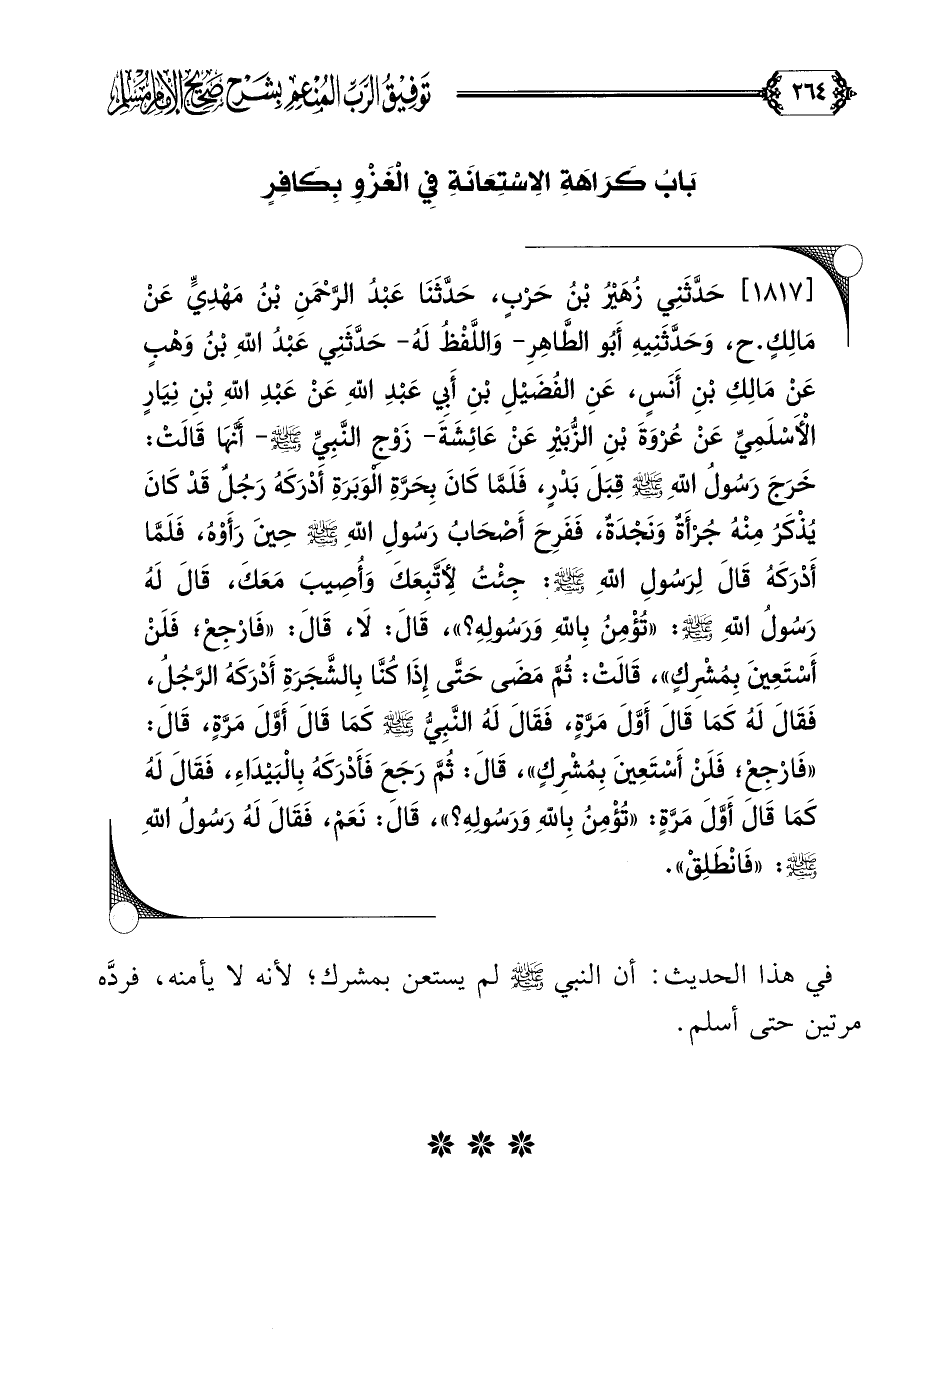 ٢٦٤ توفيق الرب المنعم بشرح صحيح الإمام مسلم
بَابُ كَرَاهَةِ الِاسْتِعَانَةِ فِي الْغَزْوِ بِكَافِرٍ
[١٨١٧] حَدَّثَنِي زُهَيْرُ بْنُ حَرْبٍ، حَدَّثَنَا عَبْدُ الرَّحْمَنِ بْنُ مَهْدِيٍّ عَنْ
مَالِكٍ.ح، وَحَدَّثَنِيهِ أَبُو الطَّاهِرِ- وَاللَّفْظُ لَهُ- حَدَّثَنِي عَبْدُ اللهِ بْنُ وَهْبٍ
عَنْ مَالِكِ بْنِ أَنَسٍ، عَنِ الفُضَيْلِ بْنِ أَبِي عَبْدِ اللهِ عَنْ عَبْدِ اللهِ بْنِ نِيَارٍ
الْأَسْلَمِيِّ عَنْ عُرْوَةَ بْنِ الزُّبَيْرِ عَنْ عَائِشَةَ- زَوْجِ النَّبِيِّ ﷺ- أَنَّهَا قَالَتْ:
خَرَجَ رَسُولُ اللهِ ﷺ قِبَلَ بَدْرٍ، فَلَمَّا كَانَ بِحَرَّةِ الْوَبَرَةِ أَدْرَكَهُ رَجُلٌ قَدْ كَانَ
يُذْكَرُ مِنْهُ جُرْأَةٌ وَنَجْدَةٌ، فَفَرِحَ أَصْحَابُ رَسُولِ اللهِ ﷺ حِينَ رَأَوْهُ، فَلَمَّا
أَدْرَكَهُ قَالَ لِرَسُولِ اللهِ ﷺ: جِئْتُ لِأَتَّبِعَكَ وَأُصِيبَ مَعَكَ، قَالَ لَهُ
رَسُولُ اللهِ ﷺ: «تُؤْمِنُ بِاللهِ وَرَسُولِهِ؟»، قَالَ: لَا، قَالَ: «فَارْجِعْ؛ فَلَنْ
أَسْتَعِينَ بِمُشْرِكٍ»، قَالَتْ: ثُمَّ مَضَى حَتَّى إِذَا كُنَّا بِالشَّجَرَةِ أَدْرَكَهُ الرَّجُلُ،
فَقَالَ لَهُ كَمَا قَالَ أَوَّلَ مَرَّةٍ، فَقَالَ لَهُ النَّبِيُّ ﷺ كَمَا قَالَ أَوَّلَ مَرَّةٍ، قَالَ:
«فَارْجِعْ؛ فَلَنْ أَسْتَعِينَ بِمُشْرِكٍ»، قَالَ: ثُمَّ رَجَعَ فَأَدْرَكَهُ بِالْبَيْدَاءِ، فَقَالَ لَهُ
كَمَا قَالَ أَوَّلَ مَرَّةٍ: «تُؤْمِنُ بِاللهِ وَرَسُولِهِ؟»، قَالَ: نَعَمْ، فَقَالَ لَهُ رَسُولُ اللهِ
ﷺ: «فَانْطَلِقْ».
في هذا الحديث: أن النبي ﷺ لم يستعن بمشرك؛ لأنه لا يأمنه، فردَّه
مرتين حتى أسلم.